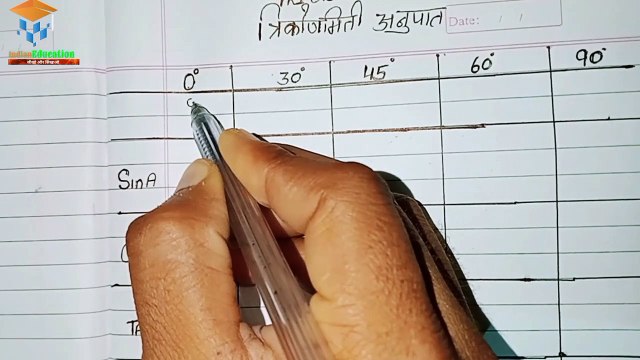 IndianEducation
त्रिकोणमिती अनुपात
Date: / /
0° 30° 45° 60° 90°
SinA